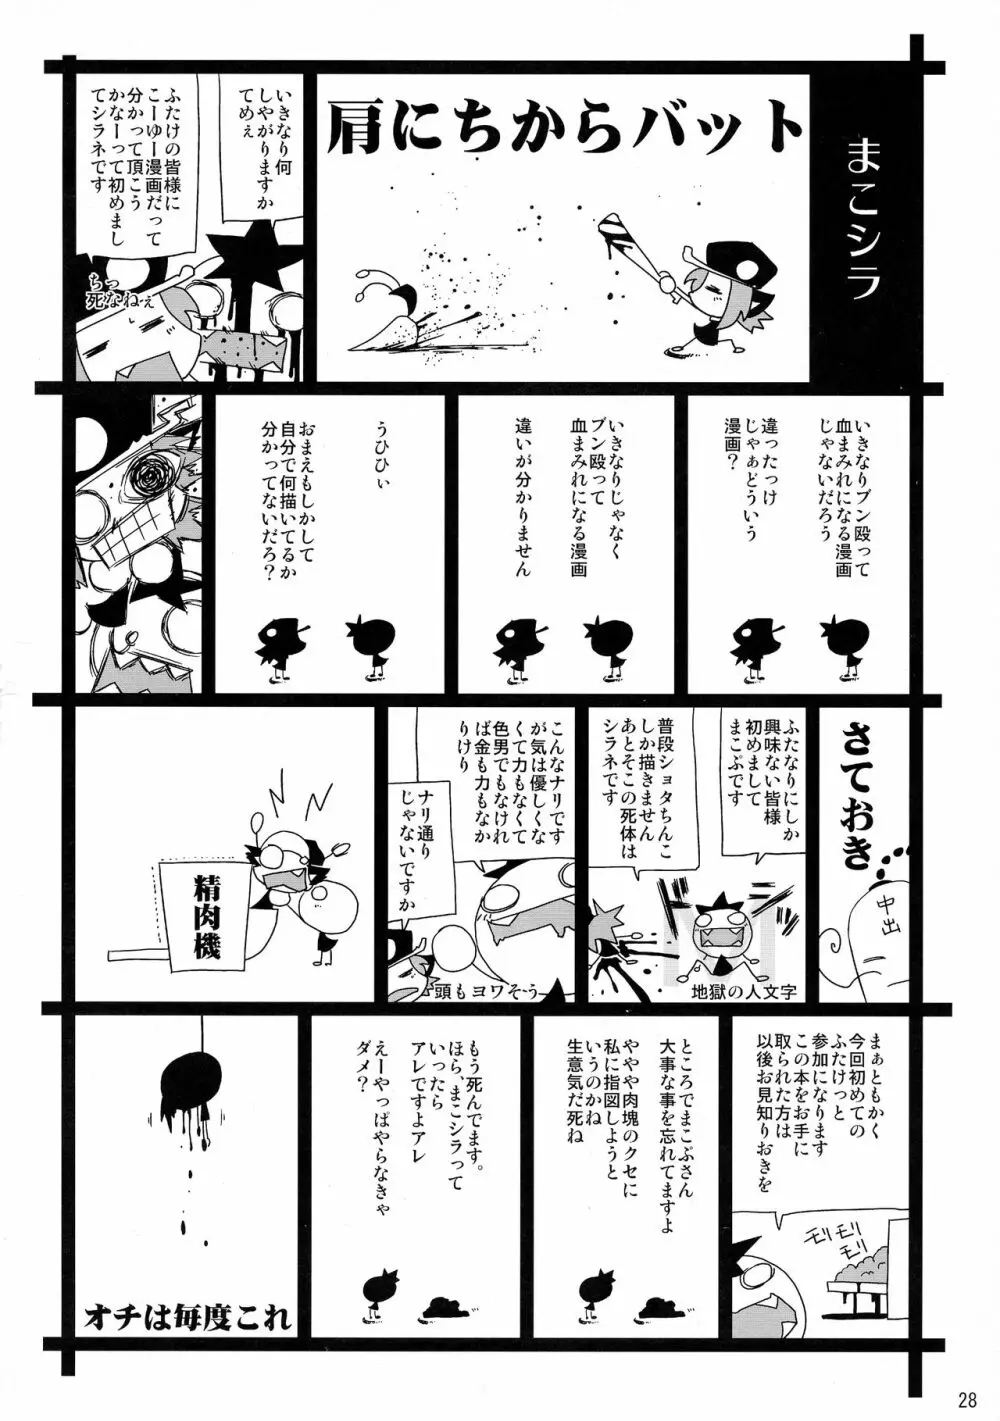 まこシラ
肩にちからバット
いきなり何
しやがりますか
てめぇ
ふたけの皆様に
こーゆー漫画だって
分かって頂こう
かなーって初めまし
てシラネです
ちっ
死なねぇ
いきなりブン殴って
血まみれになる漫画
じゃないだろう
違ったっけ
じゃぁどういう
漫画？
いきなりじゃなく
ブン殴って
血まみれになる漫画
違いが分かりません
うひひぃ
おまえもしかして
自分で何描いてるか
分かってないだろ？
さておき
中出
ふたなりにしか
興味ない皆様
初めまして
まこぷです
普段ショタちんこ
しか描きません
あとそこの死体は
シラネです
地獄の人文字
こんなナリです
が気は優しくな
くて力もなくて
色男でもなけれ
ば金も力もなか
りけり
ナリ通り
じゃないですか
頭もヨワそう
精肉機
まぁともかく
今回初めての
ふたけっと
参加になります
この本をお手に
取られた方は
以後お見知りおきを
モリモリ
モリ
ところでまこぷさん
大事な事を忘れてますよ
ややや肉塊のクセに
私に指図しようと
いうのかね
生意気だ死ね
もう死んでます。
ほら、まこシラって
いったら
アレですよアレ
えーやっぱやらなきゃ
ダメ？
オチは毎度これ
28